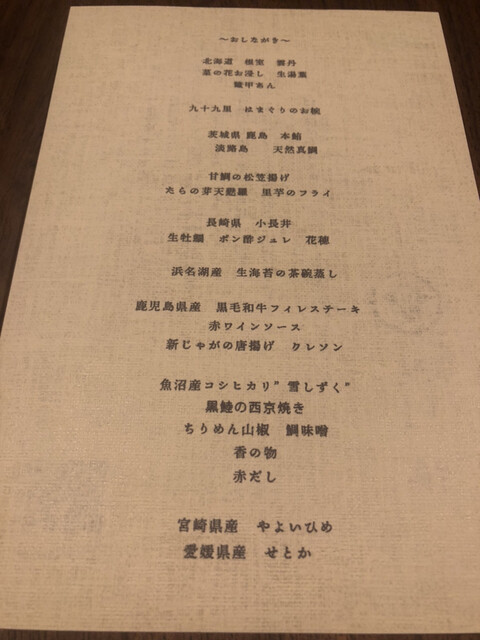 ～おしながき～
北海道　根室　雲丹
菜の花お浸し　生湯葉
鼈甲あん
九十九里　はまぐりのお椀
茨城県 鹿島　本鮪
淡路島　天然真鯛
甘鯛の松笠揚げ
たらの芽天麩羅　里芋のフライ
長崎県　小長井
生牡蠣　ポン酢ジュレ　花穂
浜名湖産　生海苔の茶碗蒸し
鹿児島県産　黒毛和牛フィレステーキ
赤ワインソース
新じゃがの唐揚げ　クレソン
魚沼産コシヒカリ”雪しずく”
黒鮭の西京焼き
ちりめん山椒　鯛味噌
香の物
赤だし
宮崎県産　やよいひめ
愛媛県産　せとか